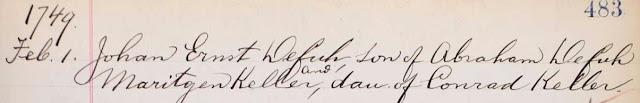 1749.
483
Feb. 1. Johan Ernst Defuh, son of Abraham Defuh
and
Maritgen Keller, dau. of Conrad Keller.